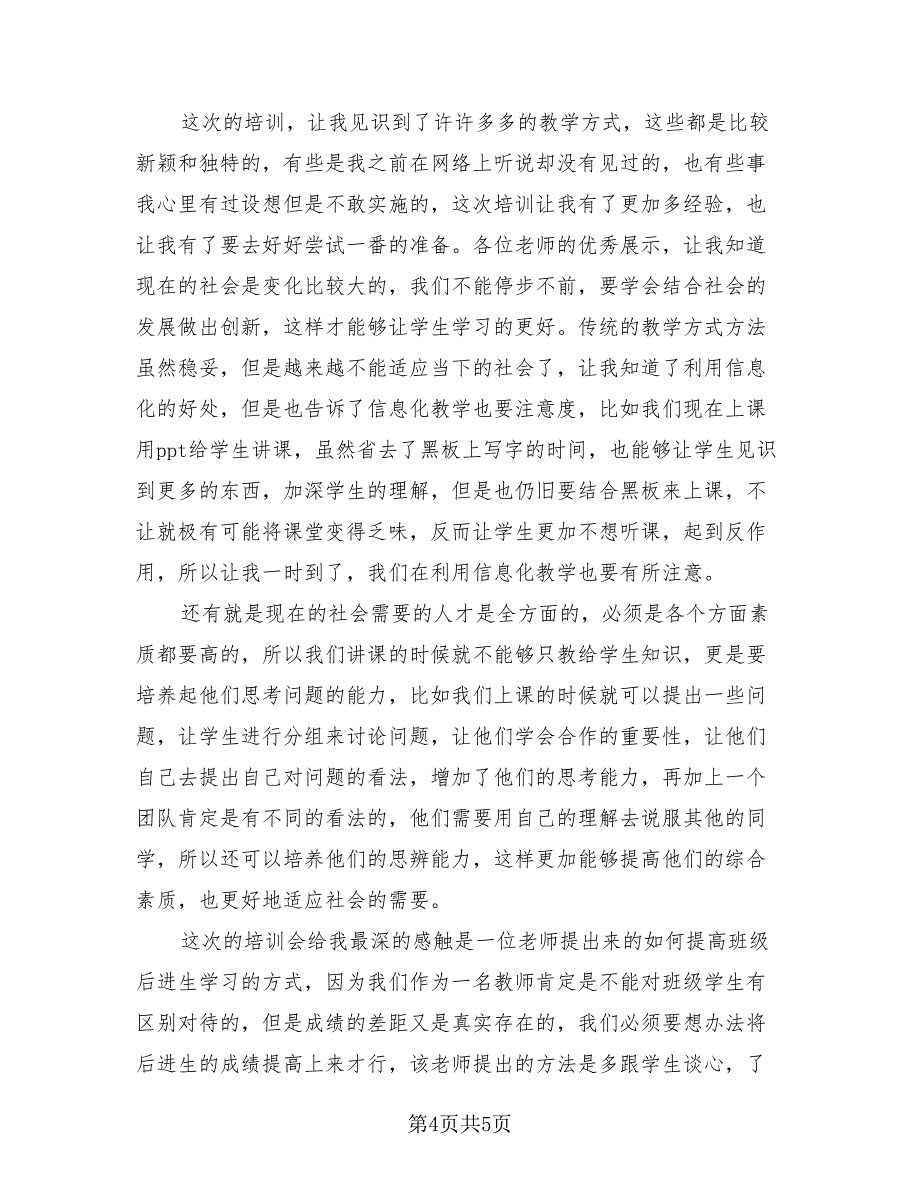 这次的培训，让我见识到了许许多多的教学方式，这些都是比较
新颖和独特的，有些是我之前在网络上听说却没有见过的，也有些事
我心里有过设想但是不敢实施的，这次培训让我有了更加多经验，也
让我有了要去好好尝试一番的准备。各位老师的优秀展示，让我知道
现在的社会是变化比较大的，我们不能停步不前，要学会结合社会的
发展做出创新，这样才能够让学生学习的更好。传统的教学方式方法
虽然稳妥，但是越来越不能适应当下的社会了，让我知道了利用信息
化的好处，但是也告诉了信息化教学也要注意度，比如我们现在上课
用ppt给学生讲课，虽然省去了黑板上写字的时间，也能够让学生见识
到更多的东西，加深学生的理解，但是也仍旧要结合黑板来上课，不
让就极有可能将课堂变得乏味，反而让学生更加不想听课，起到反作
用，所以让我一时到了，我们在利用信息化教学也要有所注意。
还有就是现在的社会需要的人才是全方面的，必须是各个方面素
质都要高的，所以我们讲课的时候就不能够只教给学生知识，更是要
培养起他们思考问题的能力，比如我们上课的时候就可以提出一些问
题，让学生进行分组来讨论问题，让他们学会合作的重要性，让他们
自己去提出自己对问题的看法，增加了他们的思考能力，再加上一个
团队肯定是有不同的看法的，他们需要用自己的理解去说服其他的同
学，所以还可以培养他们的思辨能力，这样更加能够提高他们的综合
素质，也更好地适应社会的需要。
这次的培训会给我最深的感触是一位老师提出来的如何提高班级
后进生学习的方式，因为我们作为一名教师肯定是不能对班级学生有
区别对待的，但是成绩的差距又是真实存在的，我们必须要想办法将
后进生的成绩提高上来才行，该老师提出的方法是多跟学生谈心，了
第4页共5页